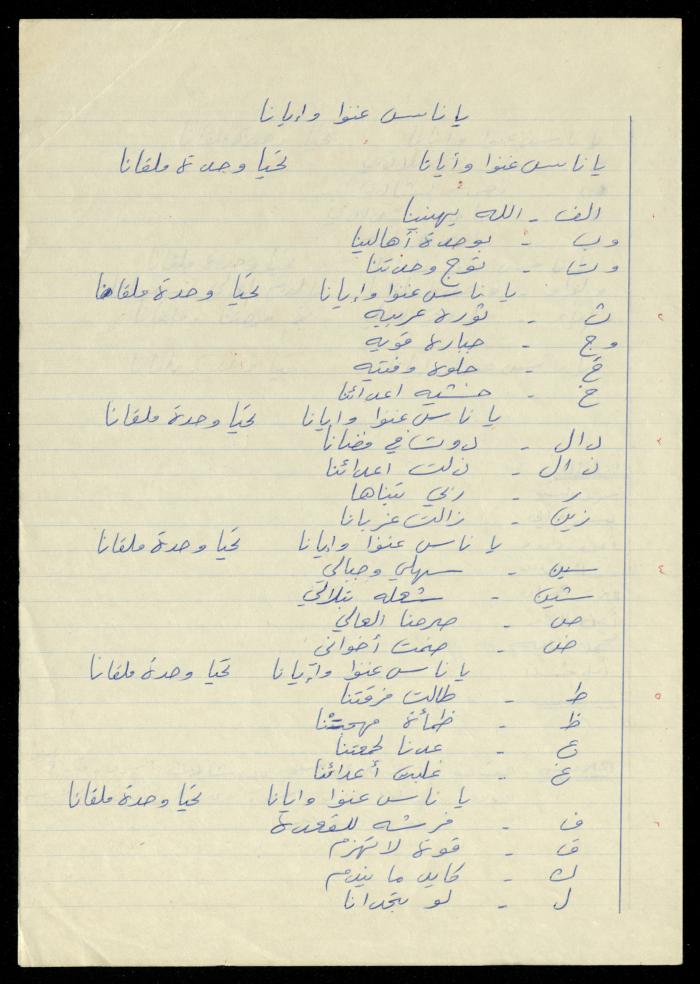 يا ناس غنوا وايانا
يا ناس غنوا وأيانا تحيّا وحدة ملقانا
الف - الله يهنينا
وب - بوحدة أهالينا
وت - توج وحدتنا
يا ناس غنوا وايانا تحيّا وحدة ملقانا
٢ ث - ثورة عربيه
وج - جبارة قويه
ح - حلوة وفتيه
خ - خشيه اعدائنا
يا ناس غنوا وايانا تحيّا وحدة ملقانا
٣ دال - دوت في فضانا
ذال - ذلت اعدائنا
ر - ربي
زين - زالت غربانا
يا ناس غنوا وايانا تحيّا وحدة ملقانا
٤ سين - سهلي وجبالي
شين - شعله تبلالي
ص - صرحنا العالي
ض - ضمت أخواني
يا ناس غنوا وأيانا تحيّا وحدة ملقانا
٥ ط - طالت فرقتنا
ظ - ظمأة مهجتنا
ع - عدنا لجمعتنا
غ - غلبت أعدائنا
يا ناس غنوا وايانا تحيّا وحدة ملقانا
٦ ف - فرشه للقعدة
ق - قوة لا تهزم
ك - كايد ما يندم
ل - لو